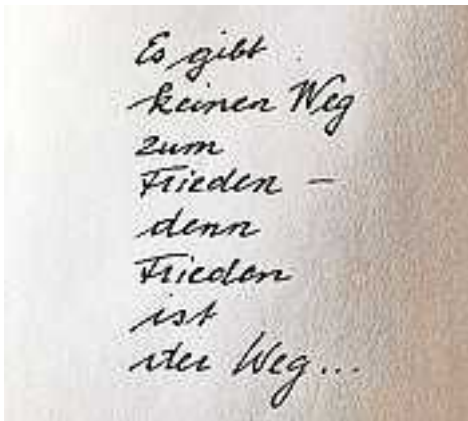 Es gibt
keinen Weg
zum
Frieden –
denn
Frieden
ist
der Weg...